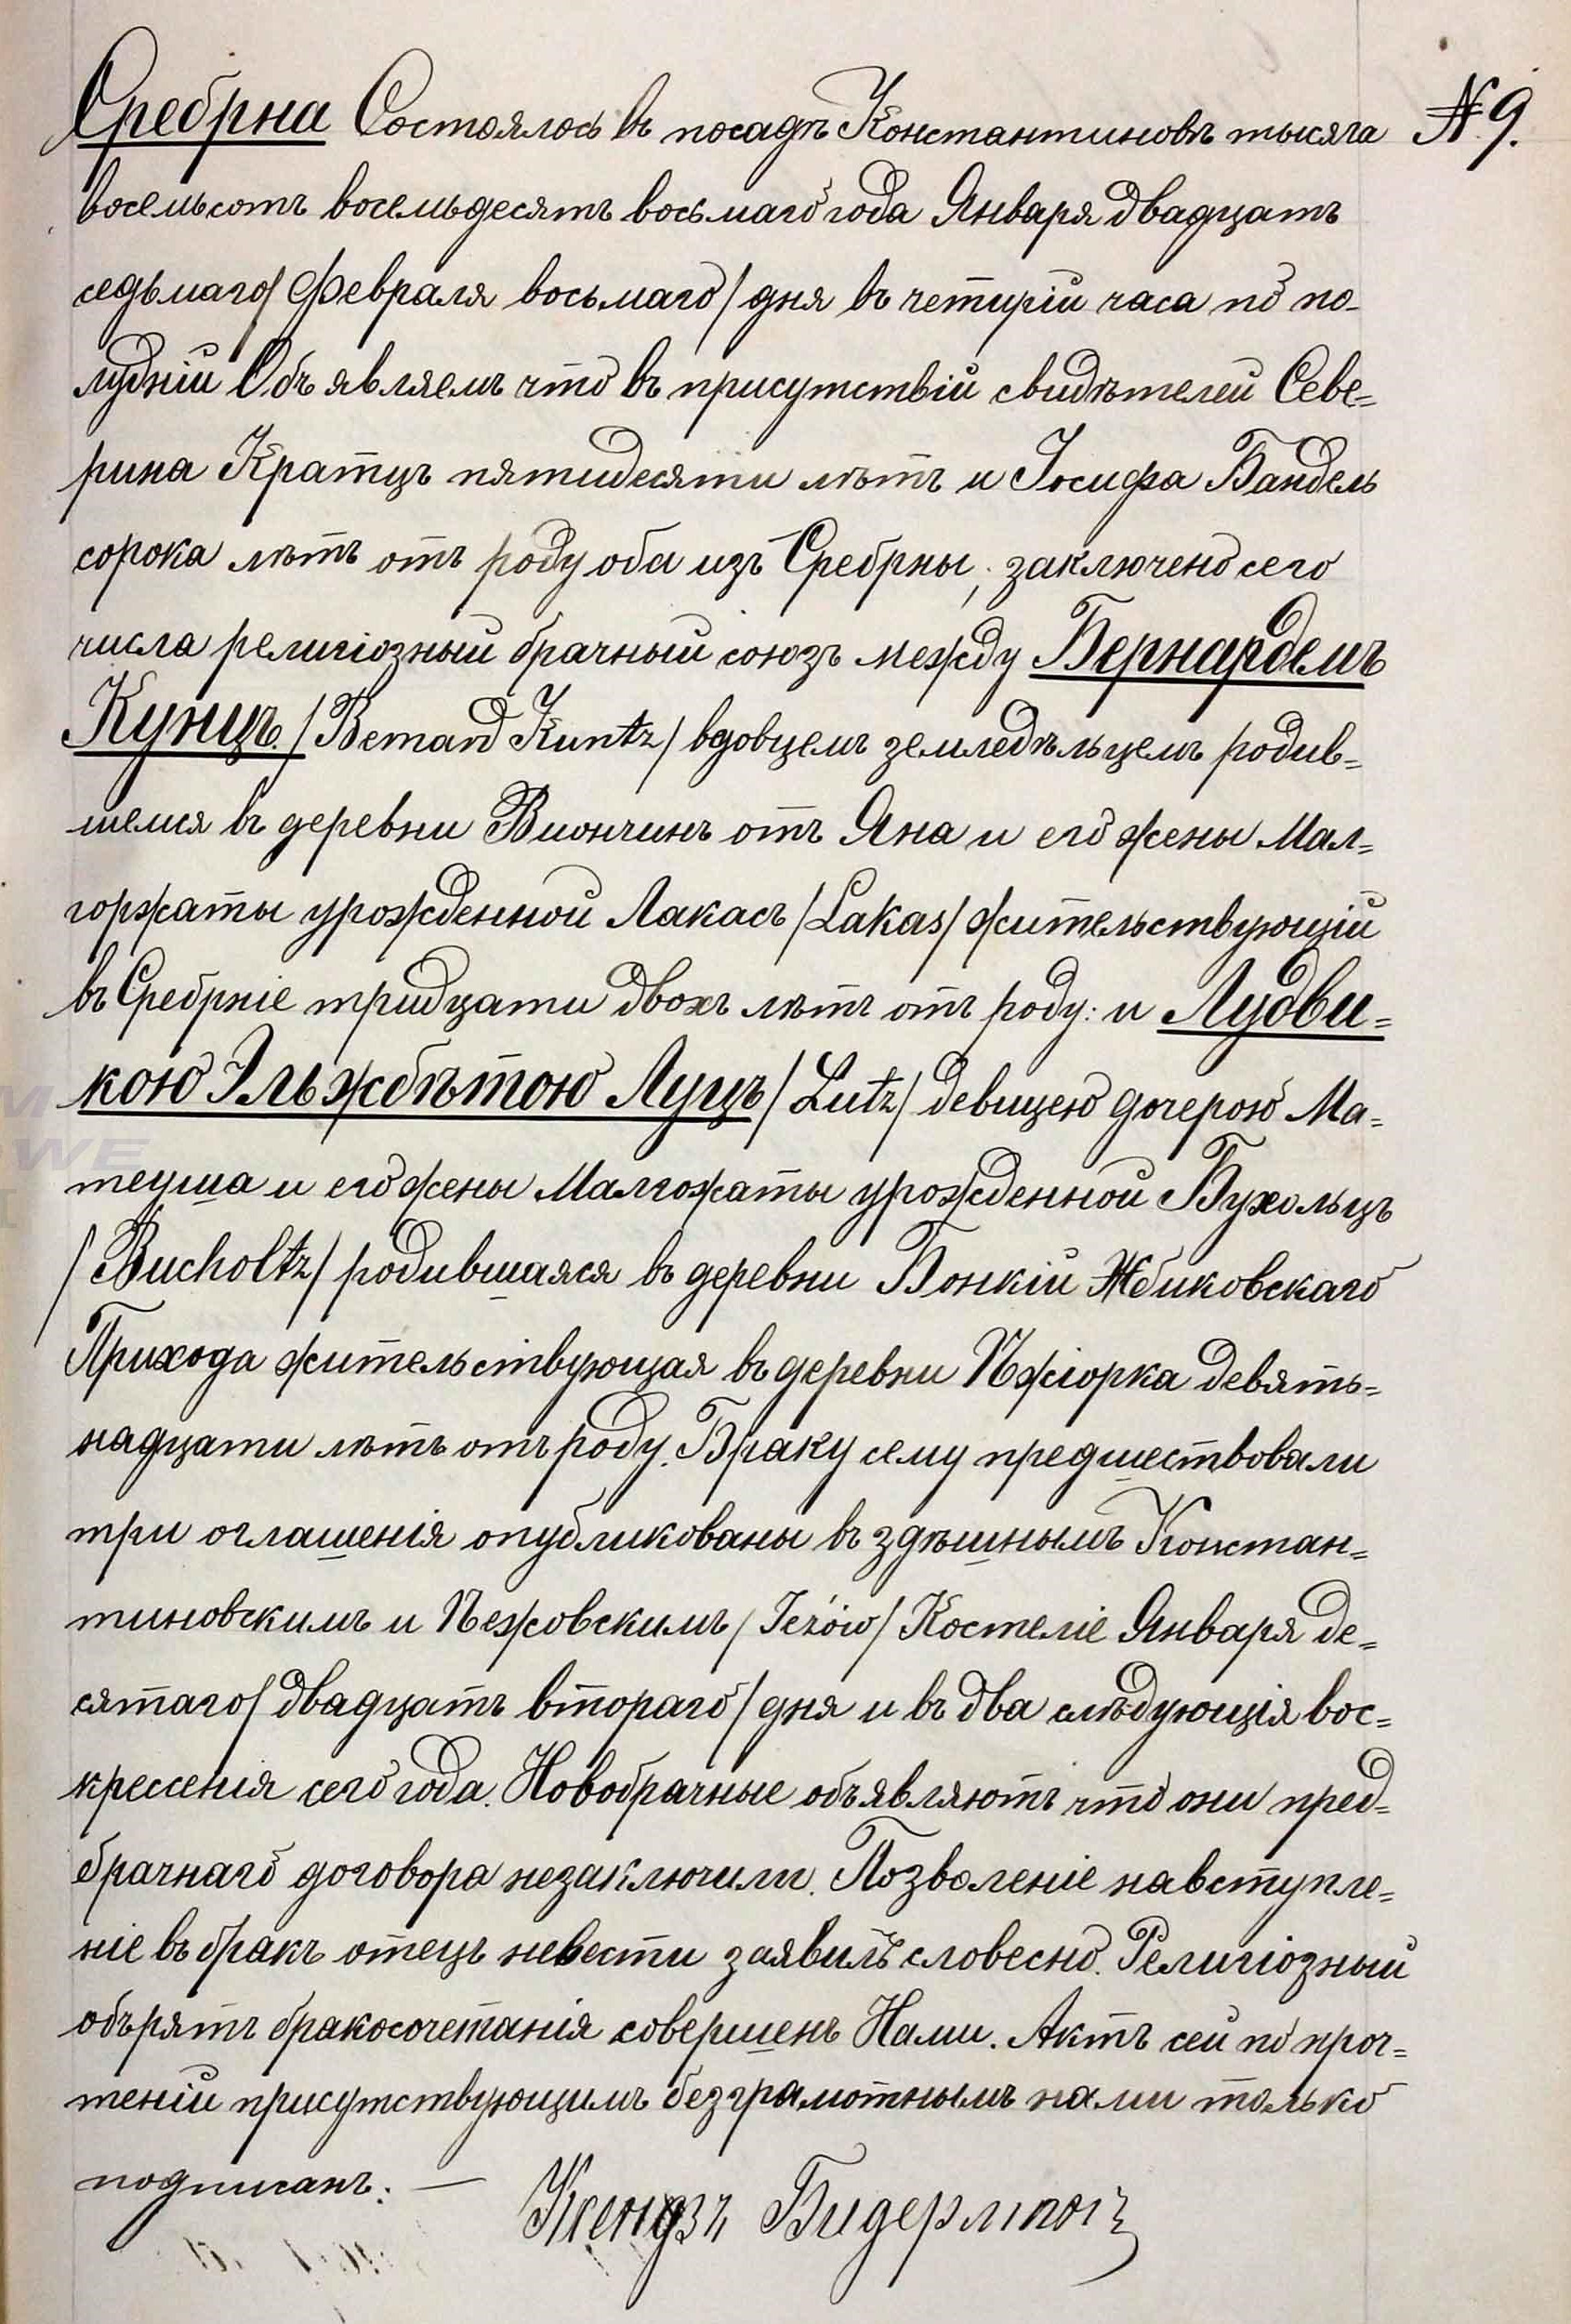 Сребрна Состоялось въ посадѣ Константиновѣ тысяча № 9.
восемьсотъ восемьдесятъ восьмаго года Января двадцатъ
седьмаго/ Февраля восьмаго/ дня въ четырiи часа по по-
луднiи Объявляемъ что въ присутствiи свидѣтелей Севе=
рина Кратцъ пятидесяти лѣтъ и Іосифа Бандель
сорока лѣтъ отъ роду оба изъ Сребрны, заключено сего
числа религіозный брачный союзъ между Бернардемъ
Кунцъ /Bernard Kuntz/ вдовцемъ земледѣльцемъ родив=
шемся въ деревни Вiончинъ отъ Яна и его жены Мал=
горжаты урожденной Лакасъ /Lakas/ жительствующiй
въ Сребрніе тридцати двохъ лѣтъ отъ роду: и Лудви=
кою Эльжбѣтою Луцъ /Lutz/ девицею дочерою Ма=
теуша и его жены Малгожаты урожденной Бухольцъ
/Bucholtz/ родившаяся въ деревни Бонкiй Жбиковскаго
Прихода жительствующая въ деревни Пжiорка девять=
надцати лѣтъ отъ роду. Браку сему предшествовали
три оглашенія опубликованы въ здѣшнымъ Констан=
тиновскимъ и Ѣежовскимъ /Jeżów/ Костеліе Января де=
сятаго/ двадцатъ втораго/ дня и въ два слѣдующія вос=
кресенія сего года. Новобрачные объявляютъ что они пред=
брачнаго договора незаключили. Позволеніе навступле=
ніе въ бракъ отецъ невести заявилъ словесно. Религіозный
обърятъ бракосочетанія совершенъ Нами. Актъ сей по проч=
тенiи присутствующимъ безграмотнымъ нами только
подписанъ: —
Ксендзъ Бидерманъ